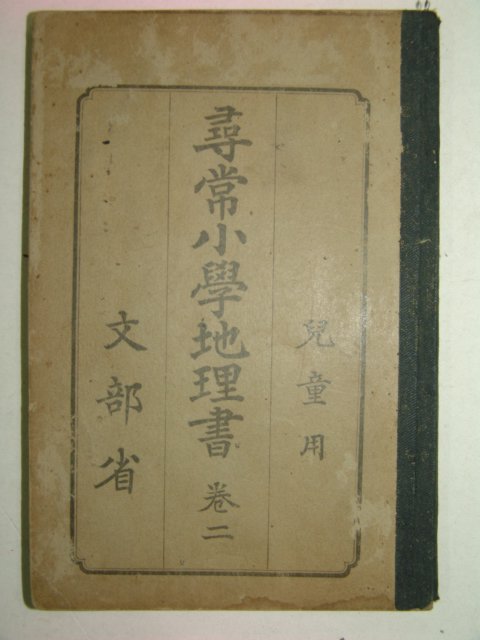 兒童用
尋常小學地理書 卷二
文部省